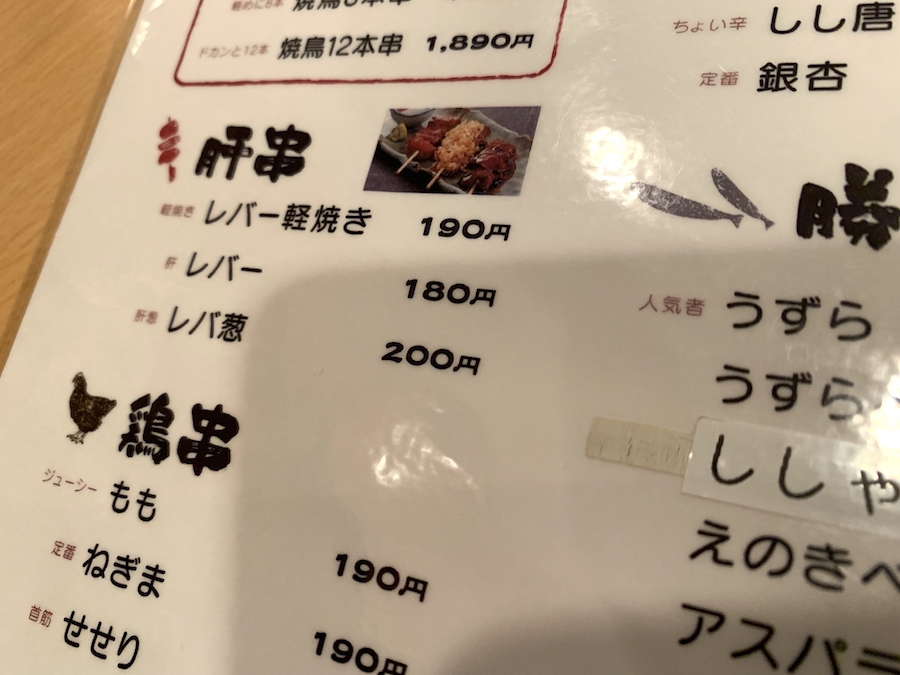 軽めに8本 焼鳥8本串
ドカンと12本 焼鳥12本串 1,890円
肝串
軽焼き レバー軽焼き 190円
肝 レバー 180円
肝葱 レバ葱 200円
鶏串
ジューシー もも
定番 ねぎま 190円
首筋 せせり 190円
ちょい辛 しし唐
定番 銀杏
勝
人気者 うずら
うずら
ししゃ
えのきべ
アスパラ